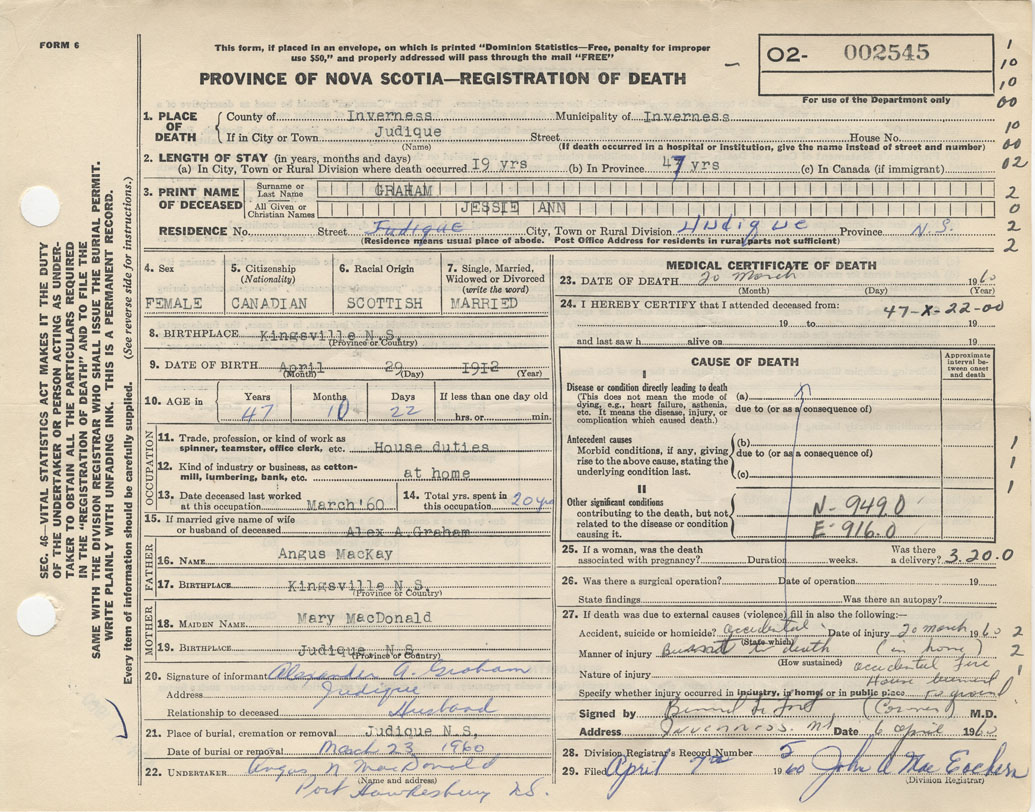 FORM 6
This form, if placed in an envelope, on which is printed "Dominion Statistics—Free, penalty for improper
use $50," and properly addressed will pass through the mail "FREE"
PROVINCE OF NOVA SCOTIA—REGISTRATION OF DEATH
02- 002545
For use of the Department only
1
10
10
00
10
00
02
2
0
2
2
1. PLACE OF DEATH
County of Inverness Municipality of Inverness
If in City or Town Judique Street House No.
(Name) (If death occurred in a hospital or institution, give the name instead of street and number)
2. LENGTH OF STAY (in years, months and days)
(a) In City, Town or Rural Division where death occurred 19 yrs (b) In Province 47 yrs (c) In Canada (if immigrant)
3. PRINT NAME OF DECEASED
Surname or Last Name GRAHAM
All Given or Christian Names JESSIE ANN
RESIDENCE No. Street Judique City, Town or Rural Division Judique Province N.S.
(Residence means usual place of abode. Post Office Address for residents in rural parts not sufficient)
4. Sex
FEMALE
5. Citizenship
(Nationality)
CANADIAN
6. Racial Origin
SCOTTISH
7. Single, Married,
Widowed or Divorced
(write the word)
MARRIED
8. BIRTHPLACE Kingsville N.S.
(Province or Country)
9. DATE OF BIRTH April 29 1912
(Month) (Day) (Year)
10. AGE in
Years Months Days If less than one day old
47 10 22 hrs. or min.
OCCUPATION
11. Trade, profession, or kind of work as
spinner, teamster, office clerk, etc. House duties
12. Kind of industry or business, as cotton-
mill, lumbering, bank, etc. at home
13. Date deceased last worked
at this occupation. March'60
14. Total yrs. spent in
this occupation. 20 yrs
15. If married give name of wife
or husband of deceased Alex A. Graham
FATHER
16. NAME Angus MacKay
17. BIRTHPLACE Kingsville N.S.
(Province or Country)
MOTHER
18. MAIDEN NAME Mary MacDonald
19. BIRTHPLACE Judique N.S.
(Province or Country)
20. Signature of informant Alexander A. Graham
Address Judique
Relationship to deceased Husband
21. Place of burial, cremation or removal Judique N.S,
Date of burial or removal March 23 1960
22. UNDERTAKER Angus N MacDonald
(Name and address)
Port Hawkesbury N.S.
MEDICAL CERTIFICATE OF DEATH
23. DATE OF DEATH 20 March 1960
(Month) (Day) (Year)
24. I HEREBY CERTIFY that I attended deceased from:
47-X-22-00
19 to 19
and last saw h alive on 19
CAUSE OF DEATH
Approximate interval between onset and death
I
Disease or condition directly leading to death
(This does not mean the mode of
dying, e.g., heart failure, asthenia,
etc. It means the disease, injury, or
complication which caused death.)
(a)
due to (or as a consequence of)
Antecedent causes
Morbid conditions, if any, giving
rise to the above cause, stating the
underlying condition last.
(b)
due to (or as a consequence of)
(c)
II
Other significant conditions
contributing to the death, but not
related to the disease or condition
causing it.
N-949.0
E-916.0
1
1
1
25. If a woman, was the death
associated with pregnancy? Duration weeks.
Was there
a delivery? 3.20.0
26. Was there a surgical operation? Date of operation 19
State findings Was there an autopsy?
27. If death was due to external causes (violence) fill in also the following:—
Accident, suicide or homicide? accidental Date of injury 20 March 1960 2
(State which)
Manner of injury to death (in home) 2
(How sustained)
Nature of injury accidental fire 1
House burned
Specify whether injury occurred in industry, in home, or in public place to ground 1
Signed by (Coroner) M.D.
Address Inverness. NS Date 6 April 1960
28. Division Registrar's Record Number 5
29. Filed April 7th 1960 John A Mac Eachern
(Division Registrar)
SEC. 46—VITAL STATISTICS ACT MAKES IT THE DUTY
OF THE UNDERTAKER OR PERSON ACTING AS UNDER-
TAKER TO OBTAIN ALL THE PARTICULARS REQUIRED
IN THE "REGISTRATION OF DEATH" AND TO FILE THE
SAME WITH THE DIVISION REGISTRAR WHO SHALL ISSUE THE BURIAL PERMIT.
WRITE PLAINLY WITH UNFADING INK. THIS IS A PERMANENT RECORD.
Every item of information should be carefully supplied. (See reverse side for instructions.)